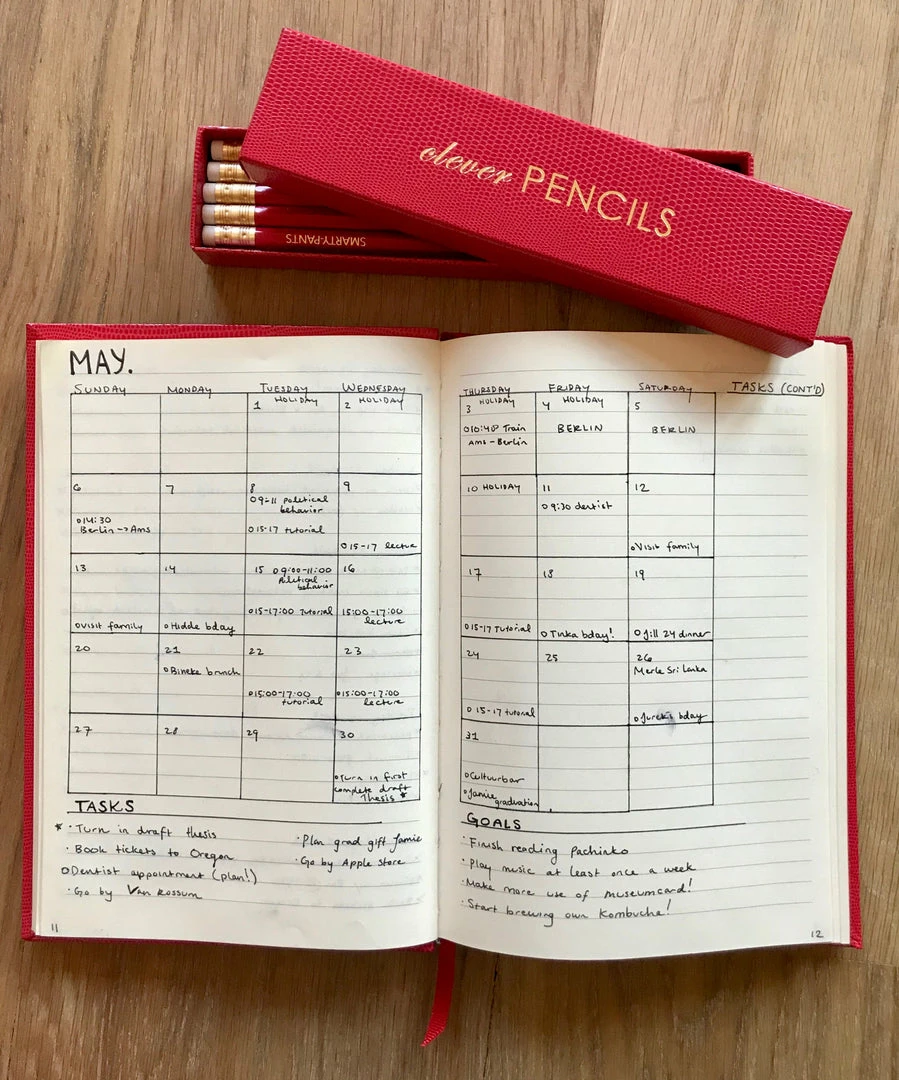 clever PENCILS
SMARTY-PANTS
MAY.
SUNDAY MONDAY TUESDAY WEDNESDAY
1 HOLIDAY
2 HOLIDAY
6
014:30
Berlin → Ams
7
8
09-11 political
behavior
015-17 tutorial
9
015-17 lecture
13
o Visit family
14
o Hidde bday
15 09:00-11:00
Political
behavior
015-17:00 Tutorial
16
15:00-17:00
lecture
20
21
o Bineke brunch
22
015:00-17:00
tutorial
23
015:00-17:00
lecture
27
28
29
30
o Turn in first
complete draft
Thesis *
TASKS
* · Turn in draft thesis
· Book tickets to Oregon
o Dentist appointment (plan!)
· Go by Van Rossum
· Plan grad gift Jamie
· Go by Apple store
11
THURSDAY FRIDAY SATURDAY TASKS (CONT'D)
3 HOLIDAY
Train
Ams - Berlin
4 HOLIDAY
BERLIN
5
BERLIN
10 HOLIDAY
11
09:30 dentist
12
o Visit family
17
015-17 Tutorial
18
o Tinka bday!
19
o Jill 24 dinner
24
015-17 tutorial
25
26
Merle Sri Lanka
o Jurek's bday
31
o Cultuurbar
o Jamie
graduation
GOALS
· Finish reading Pachinko
· Play music at least once a week
· Make more use of museumcard!
· Start brewing own Kombucha!
12